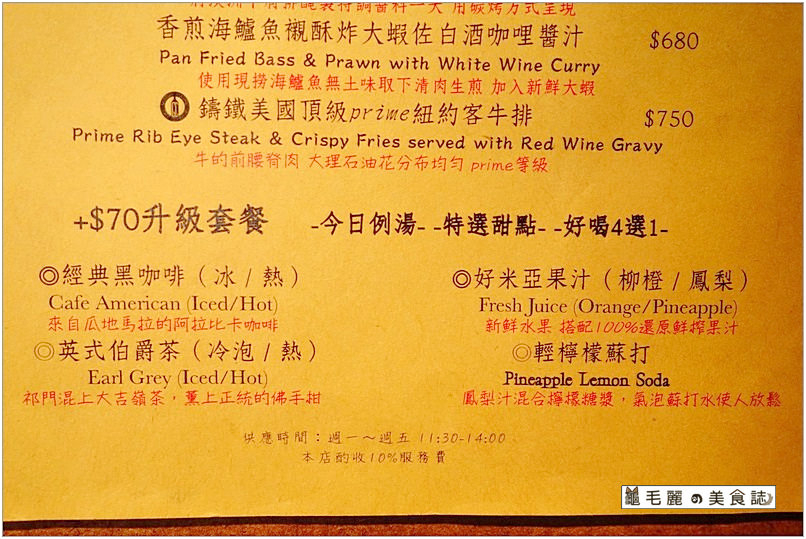 香煎海鱸魚襯酥炸大蝦佐白酒咖哩醬汁 $680
Pan Fried Bass & Prawn with White Wine Curry
使用現撈海鱸魚無土味取下清肉生煎 加入新鮮大蝦
鑄鐵美國頂級prime紐約客牛排 $750
Prime Rib Eye Steak & Crispy Fries served with Red Wine Gravy
牛的前腰脊肉 大理石油花分布均勻 prime等級
+$70升級套餐 -今日例湯- -特選甜點- -好喝4選1-
◎經典黑咖啡（冰 / 熱）
Cafe American (Iced/Hot)
來自瓜地馬拉的阿拉比卡咖啡
◎英式伯爵茶（冷泡 / 熱）
Earl Grey (Iced/Hot)
祁門混上大吉嶺茶，薰上正統的佛手柑
◎好米亞果汁（柳橙 / 鳳梨）
Fresh Juice (Orange/Pineapple)
新鮮水果 搭配100%還原鮮榨果汁
◎輕檸檬蘇打
Pineapple Lemon Soda
鳳梨汁混合檸檬糖漿，氣泡蘇打水使人放鬆
供應時間：週一～週五 11:30-14:00
本店酌收10%服務費
毛麗の美食誌